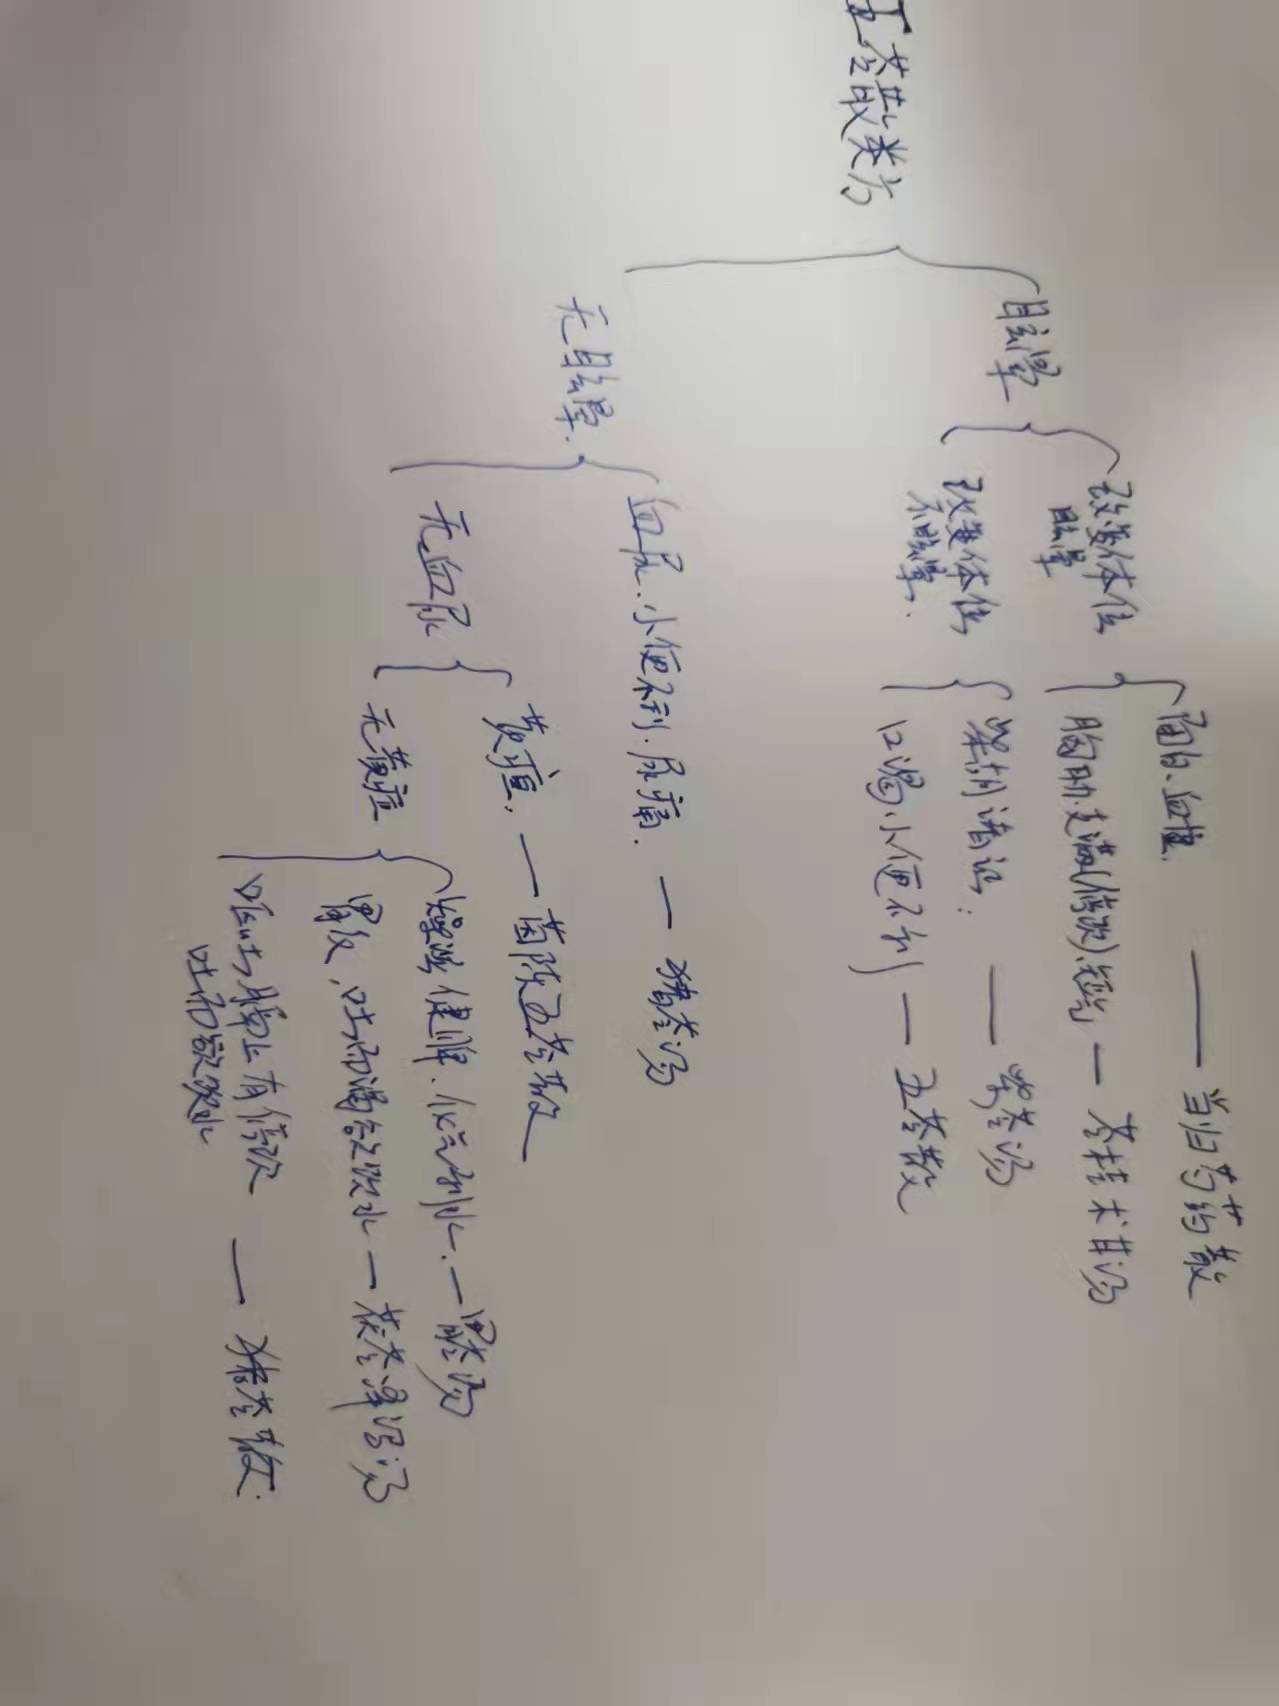 五苓散类方
目眩晕
改变体位
眩晕
面白、血虚
当归芍药散
胸胁支满(停饮)、短气 — 苓桂术甘汤
改变体位
不眩晕.
柴胡诸证: — 柴苓汤
口渴小便不利 — 五苓散
无目眩晕.
血尿.小便不利.尿痛. — 猪苓汤
无血尿
黄疸, — 茵陈五苓散
无黄疸
燥湿健脾.化气利水. — 胃苓汤
胃反,吐而渴欲饮水 — 茯苓泽泻汤
呕吐,膈上有停饮
吐而欲饮水
— 猪苓散.